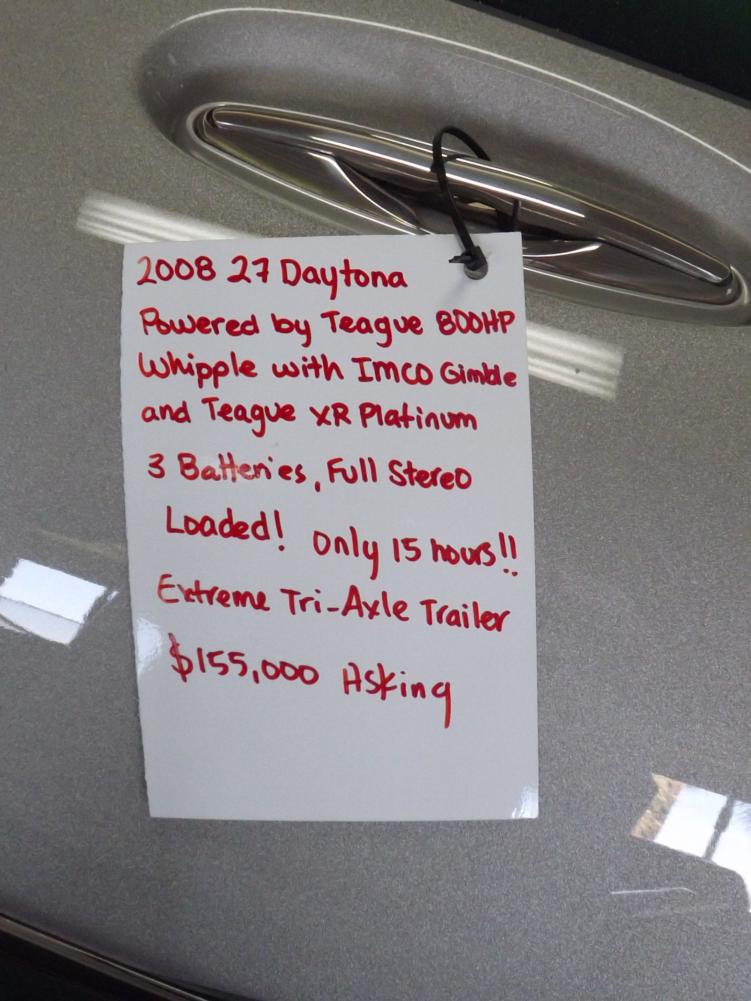 2008 27 Daytona
Powered by Teague 800HP
Whipple with IMCO Gimble
and Teague XR Platinum
3 Batteries, Full Stereo
Loaded! Only 15 hours!!
Extreme Tri-Axle Trailer
$155,000 Asking